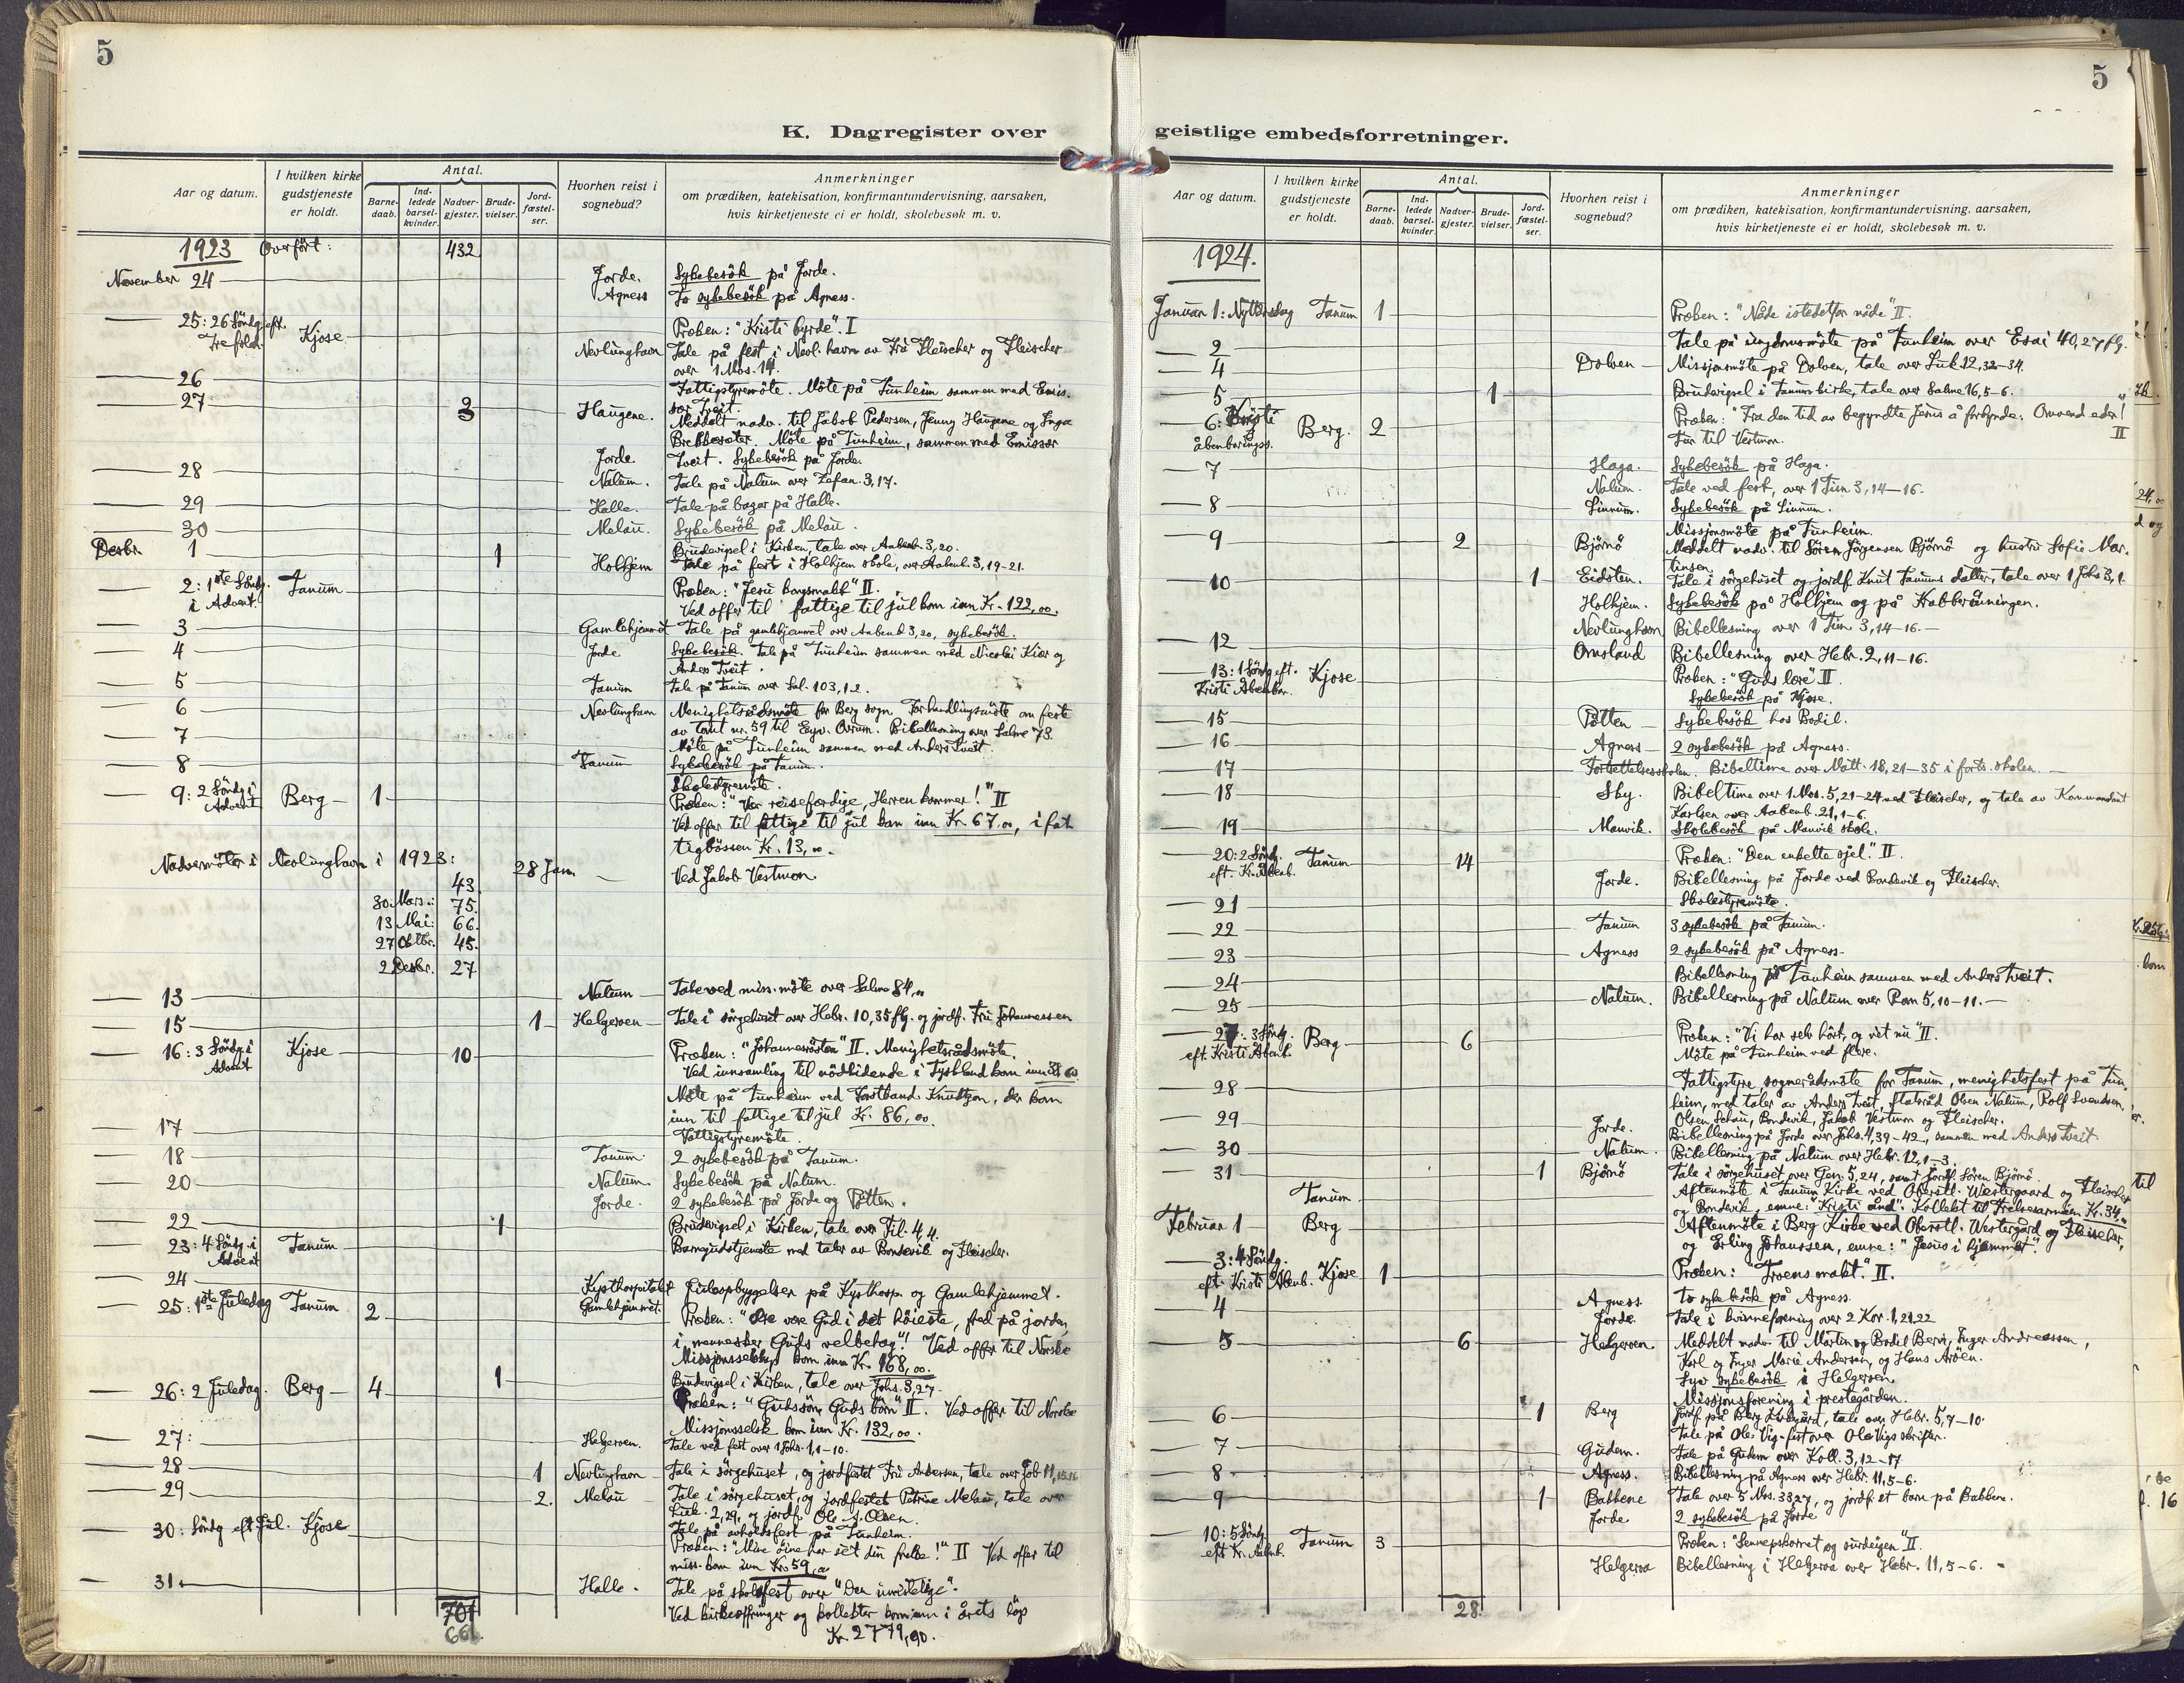 5
K. Dagregister over
Aar og datum.
I hvilken kirke gudstjeneste er holdt.
Antal.
Barne-daab.
Ind-ledede barsel-kvinder.
Nadver-gjester.
Brude-vielser.
Jord-fæstel-ser.
Hvorhen reist i sognebud?
Anmerkninger
om prædiken, katekisation, konfirmantundervisning, aarsaken,
hvis kirketjeneste ei er holdt, skolebesøk m. v.
1923 Overført: 432
November 24 Jorde. Sykebesök på Jorde.
Agness To sykebesök på Agness.
25: 26 Söndg. eft. Trefoldh. Kjose Præken: "Kristi byrde". I
Nevlunghavn Tale på fest i Nevl. havn av Frü Fleischer og Fleischer
over 1 Mos. 14.
26 Fattigstyremöte. Möte på Tunheim sammen med Emis-
sær Tveit.
27 3 Haugene. Meddelt nadv. til Jakob Pedersen, Jenny Haugene og Inga
Möte på Tunheim, sammen med Emissær
Jorde. Tveit. Sykebesök på Jorde.
28 Nalum. Tale på Nalum over Zefan. 3,17.
29 Halle. Tale på bazar på Halle.
30 Melau. Sykebesök på Melau.
Desbr. 1 1 Brudevigsel i Kirken, tale over Aabenb. 3,20.
Holhjem Tale på fest i Holhjem skole, over Aabenb. 3,19-21.
2: 1ste Söndg. i Advent. Tanum Præken: "Jesu kongsmakt" II.
Ved offer til fattige til jul kom inn Kr. 122,00.
3 Gamlehjemmet Tale på gamlehjemmet over Aabenb. 3,20, sykebesök.
4 Jorde Sykebesök. Tale på Tunheim sammen med Nicolai Kiær og
Anders Tveit.
5 Tanum Tale på Tanum over Sal. 103,1.2.
6 Nevlunghavn Menighetsrådsmöte for Berg sogn. Forhandlingsmöte om feste
av tomt nr. 59 til Eyv. Bibellesning over Salme 73.
7 Möte på Tunheim sammen med Anders Tveit.
8 Tanum Sykebesök på Tanum.
Skolestyremöte.
9: 2 Söndg i Advent Berg 1 Præken: "Vær reisefærdige, Herren kommer!" II
Ved offer til fattige til jul kom inn Kr. 67,00, i fat-
tigbössen Kr. 13,00.
Nadvermöter i Nevlunghavn i 1923: 28 Jan. 43. Ved Jakob Vestmon.
30 Mars: 75.
13 Mai: 66.
27 Oktbr. 45.
2 Desbr. 27
13 Nalum Tale ved miss. möte over Salme 84,
15 1 Helgeroen Tale i sörgehuset over Hebr. 10,35 flg. og jordf. Frü Johannessen
16: 3 Söndg. i Advent Kjose 10 Præken: "Johannesrösten" II. Menighetsrådsmöte.
Ved innsamling til nödlidende i Tyskland kom inn
Möte på Tunheim ved Forstkand. Knudtzon, der kom
inn til fattige til jul Kr. 86,00.
17 Fattigstyremöte.
18 Tanum 2 sykebesök på Tanum.
20 Nalum Sykebesök på Nalum.
Jorde. 2 sykebesök på Jorde og Pötten.
22 1 Brudevigsel i Kirken, tale over Fil. 4,4.
23: 4 Söndg. i Advent Tanum Barnegudstjeneste med taler av Bondevik og Fleischer.
24 Kysthospitalet Gamlehjemmet. Juleopbyggelser på Kysthosp. og Gamlehjemmet.
25: 1ste Juledag Tanum 2 Præken: "Ære være Gud i det höieste, fred på jorden,
i mennesker Guds velbehag"! Ved offer til Norske
Missjonsselskap kom inn Kr. 168,00.
1 Brudevigsel i Kirken, tale over Johs. 3,27.
26: 2 Juledag. Berg 4 Præken: "Guds sön, Guds börn" II. Ved offer til Norske
Missjonsselsk. kom inn Kr. 132,00.
27: Helgeroen. Tale ved fest over 1 Johs. 1,1-10.
28 1 Nevlunghavn Tale i sörgehuset, og jordfestet Frü Andersen, tale over Job 11,15.16
29 2. Melau Tale i sörgehuset, og jordfestet Petrine Melau, tale over
Luk. 2,29, og jordf. Ole J. Olsen.
Tale på avholdsfest på Tunheim.
30: Söndg eft. Jul. Kjose Præken: "Mine öine har set din frelse!" II Ved offer til
miss. kom inn Kr. 59,00
31. Halle. Tale på skolefest over "Den
701
661. Ved kirkeoffringer og kollekter kom inn i årets löp
Kr. 2779,90.
5
geistlige embedsforretninger.
Aar og datum.
I hvilken kirke gudstjeneste er holdt.
Antal.
Barne-daab.
Ind-ledede barsel-kvinder.
Nadver-gjester.
Brude-vielser.
Jord-fæstel-ser.
Hvorhen reist i sognebud?
Anmerkninger
om prædiken, katekisation, konfirmantundervisning, aarsaken,
hvis kirketjeneste ei er holdt, skolebesøk m. v.
1924.
Januar 1: Nyttårsdag Tanum 1 Præken: "Nåde istedetfor nåde" II.
2 Tale på ungdomsmöte på Tunheim over Esai 40,27 flg.
4 Dolven Missjonsmöte på Dolven, tale over Luk 12,32-34.
5 1 Brudevigsel i Tanum kirke, tale over Salme 16,5-6.
6: Kristi åbenbaringss. Berg. 2 Præken: "Fra den tid av begyndte Jesus å forkynde: Omvend eder!" II
Tur til Vestmon.
7 Haga. Sykebesök på Haga.
Nalum. Tale ved fest, over 1 Tim 3,14-16.
8 Linnum. Sykebesök på Linnum.
Missjonsmöte på Tunheim.
9 2 Björnö Meddelt nadv. til Sören Jörgensen Björnö og hustru Sofie Mar-
tinsen.
10 1 Eidsten. Tale i sörgehuset og jordf. Knut Tanums datter, tale over 1 Johs 3,1.
Holhjem. Sykebesök på Holhjem og på Krabberönningen.
Nevlunghavn Bibellesning over 1 Tim. 3,14-16.
12 Omsland Bibellesning over Hebr. 2,11-16.
13: 1 Söndg eft. Kristi Åbenbar. Kjose Præken: "Guds lære" II.
Sykebesök på Kjose.
15 Pötten Sykebesök hos Bodil.
16 Agness 2 sykebesök på Agness.
17 Fortsettelsesskolen. Bibeltime over Matt. 18,21-35 i forts. skolen.
18 Sky. Bibeltime over 1 Mos. 5,21-24 ved Fleischer, og tale av Kommandant
Karlsen over Aabenb. 21,1-6.
19 Manvik. Skolebesök på Manvik skole.
20: 2 Söndg. eft. Kr. Åbenb. Tanum 14 Præken: "Den enkelte sjel." II.
Jorde. Bibellesning på Jorde ved Bondevik og Fleischer.
21 Skolestyremöte.
22 Tanum 3 sykebesök på Tanum.
23 Agness 2 sykebesök på Agness.
24 Bibellesning på Tunheim sammen med Anders Tveit.
25 Nalum. Bibellesning på Nalum over Rom 5,10-11.
27: 3 Söndg. eft. Kristi Åbenb. Berg 6 Præken: "Vi har selv hört, og vet nu" II.
Möte på Tunheim ved flere.
28 Fattigstyre, sognerådsmöte for Tanum, menighetsfest på Tun-
heim, med taler av Anders Tveit, statsråd Olsen Nalum, Rolf Svendsen,
Olsen Bondevik, Jakob Vestmon og Fleischer.
29 Jorde. Bibellesning på Jorde over Johs. 4,39-42, sammen med Anders Tveit
30 Nalum. Bibellesning på Nalum over Hebr. 12,1-3.
31 1 Björnö Tale i sörgehuset, over Gen. 5,24, samt jordf. Sören Björnö.
Tanum Aftenmöte i Tanum Kirke ved Oberstl. Westergaard og Fleischer
og Bondevik, emne: "Kristi ånd". Kollekt til Frelsesarmeen Kr. 34,
Februar 1 Berg Aftenmöte i Berg Kirke ved Oberstl. Westergård og Fleischer,
og Erling Johanssen, emne: "Jesus i hjemmet".
3: 4 Söndg. eft. Kristi Åbenb. Kjose 1 Præken: "Troens makt." II.
4 Agness. To sykebesök på Agness.
Jorde. Tale i kvinneforening over 2 Kor. 1,21.22
5 6 Helgeroen. Meddelt nadv. til Martin og Bodil Berví, Inger Andreassen,
Karl og Inger Marie Andersen, og Hans Aröen.
Syv sykebesök i Helgeroen.
Missjonsforening i prestegården.
6 1 Berg Jordf. på Berg Kirkegård, tale over Hebr. 5,7-10.
Tale på Ole Vig-fest over Ole Vigs skrifter.
7 Gudem. Tale på Gudem over Koll. 3,12-17.
8 Agness. Bibellesning på Agness over Hebr. 11,5-6.
9 1 Bakkene Tale over 5 Mos. 33,27, og jordf. et barn på Bakkene.
Jorde 2 sykebesök på Jorde
10: 5 Söndg. eft. Kr. Åbenb. Tanum 3 Præken: "Sennepskornet og surdeigen" II.
Helgeroa Bibellesning i Helgeroa over Hebr. 11,5-6.
28